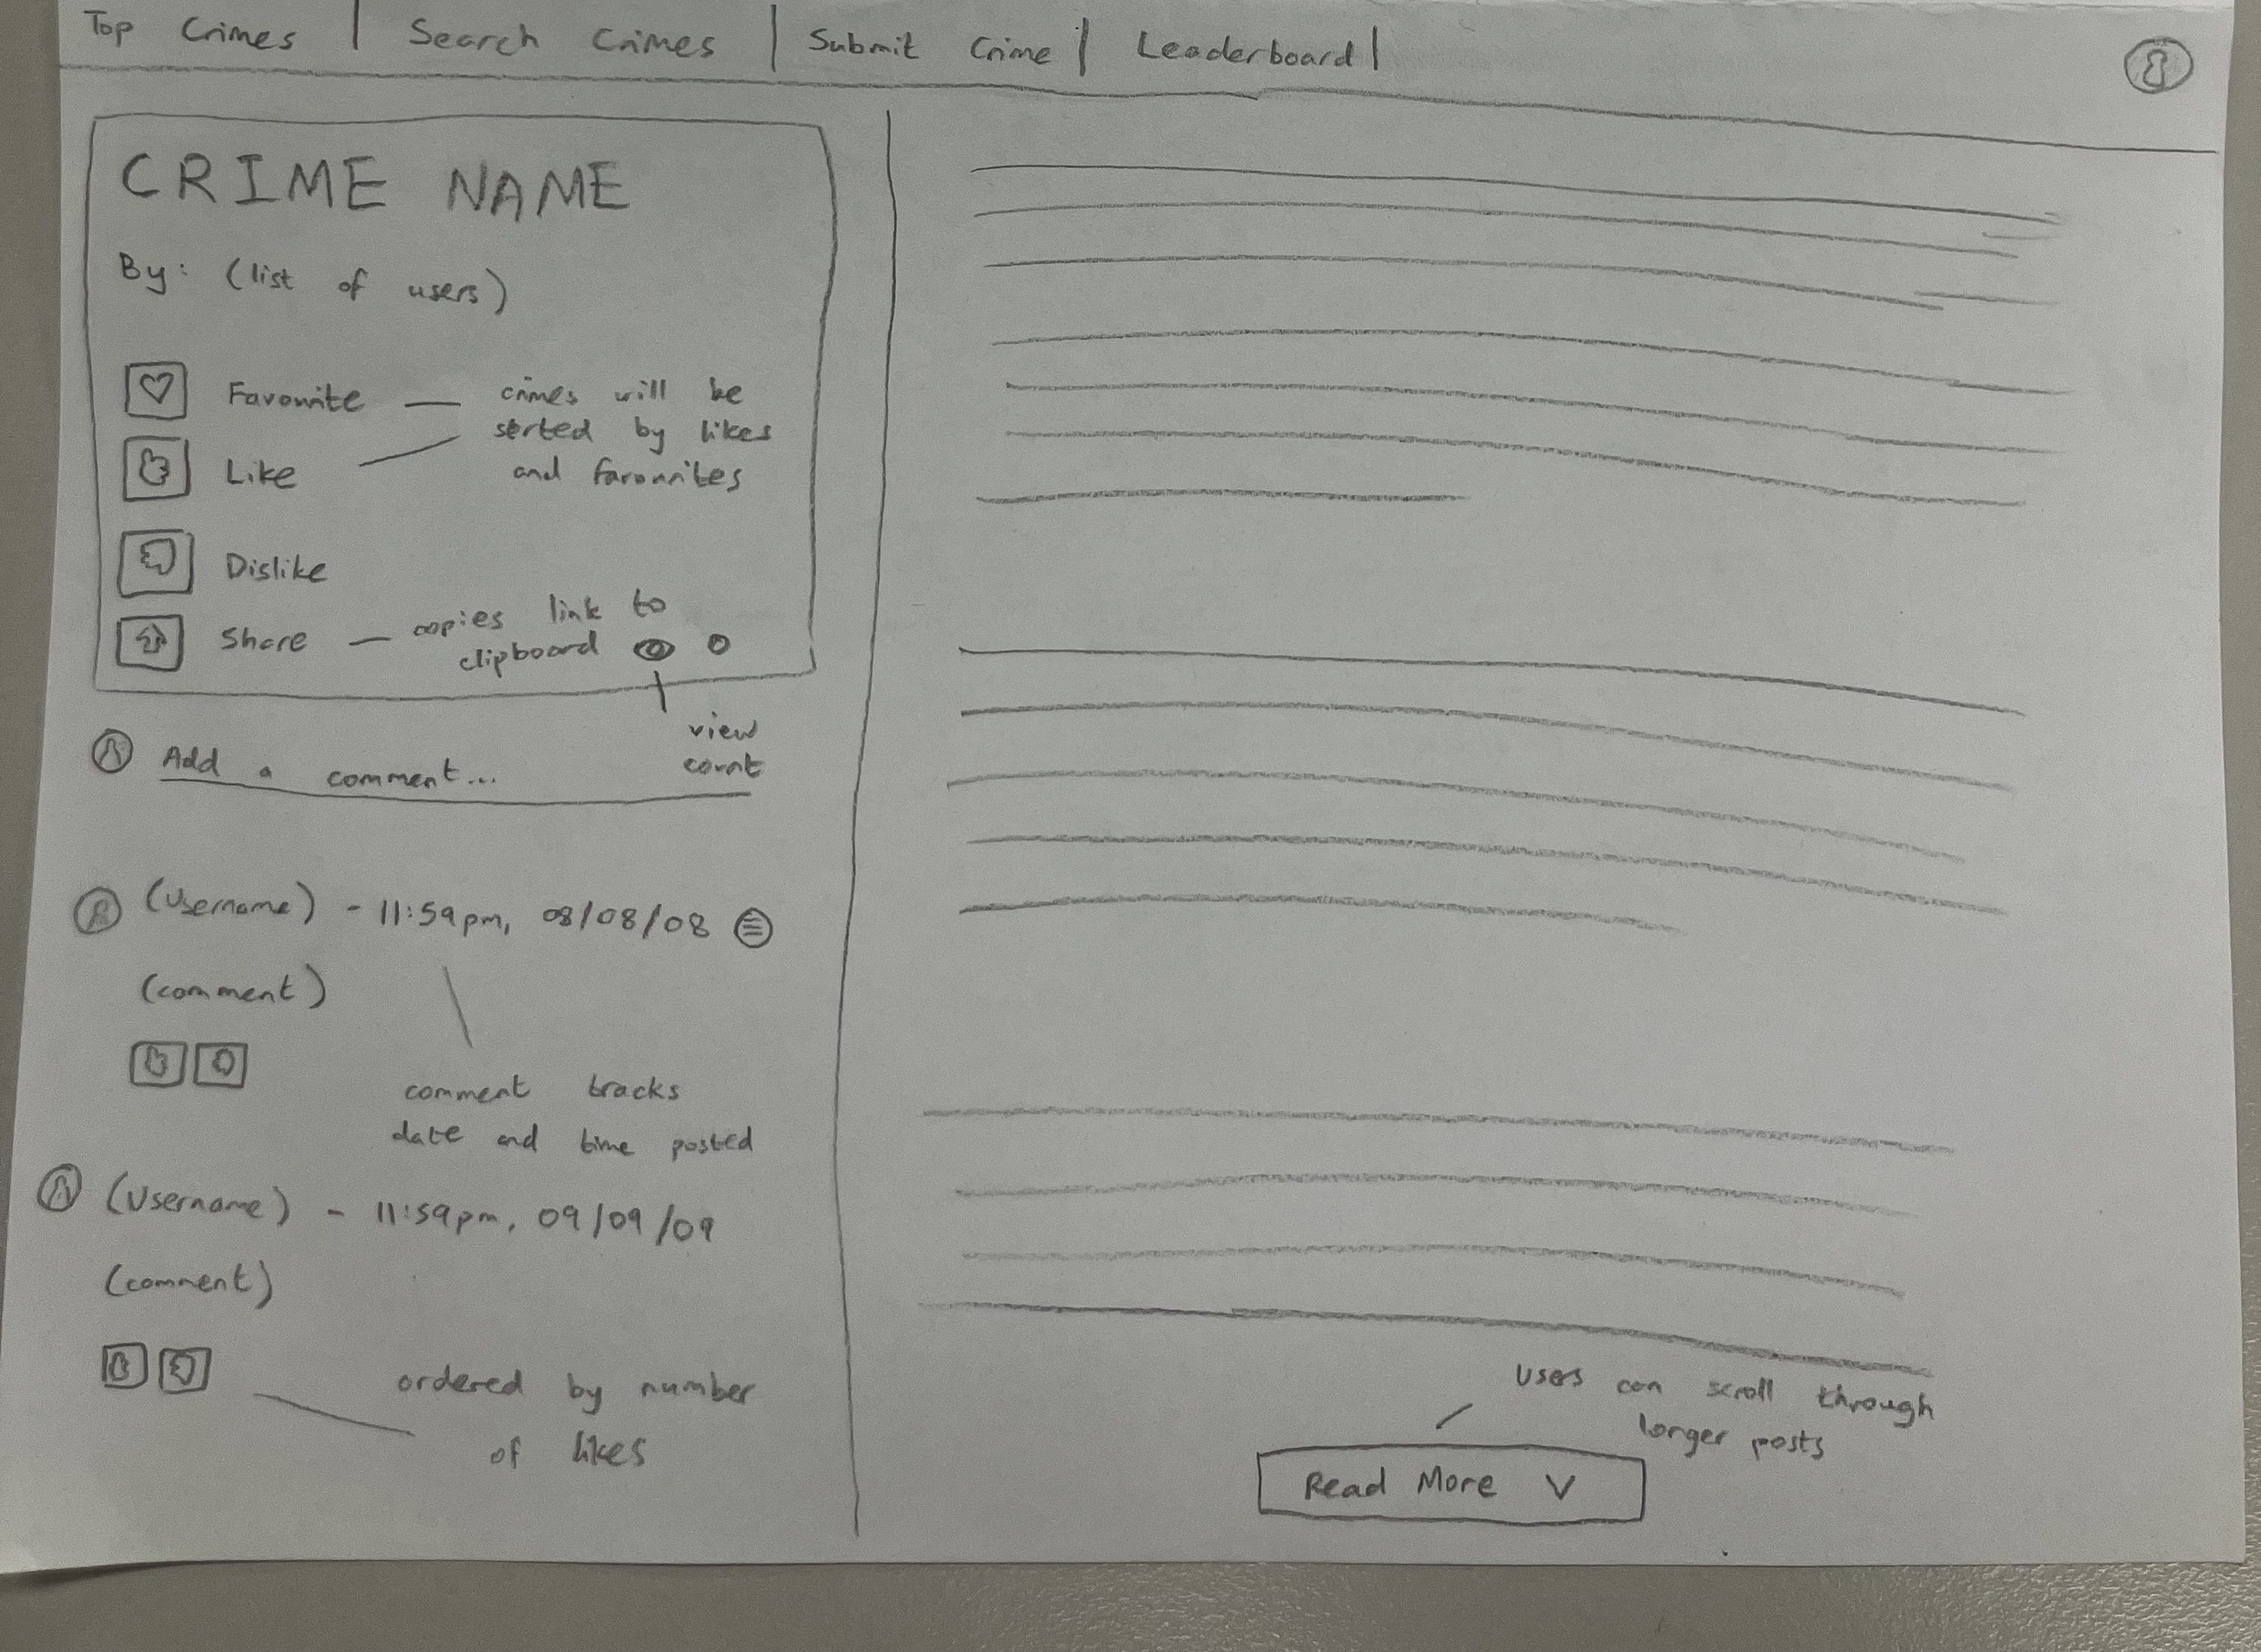 Top Crimes | Search Crimes | Submit Crime | Leaderboard |
CRIME NAME
By: (list of users)
Favourite — crimes will be
sorted by likes
and favourites
Like
Dislike
Share — copies link to
clipboard
view
count
Add a comment...
(Username) - 11:59pm, 08/08/08
(comment)
comment tracks
date and time posted
(Username) - 11:59pm, 09/09/09
(comment)
ordered by number
of likes
users can scroll through
longer posts
Read More V